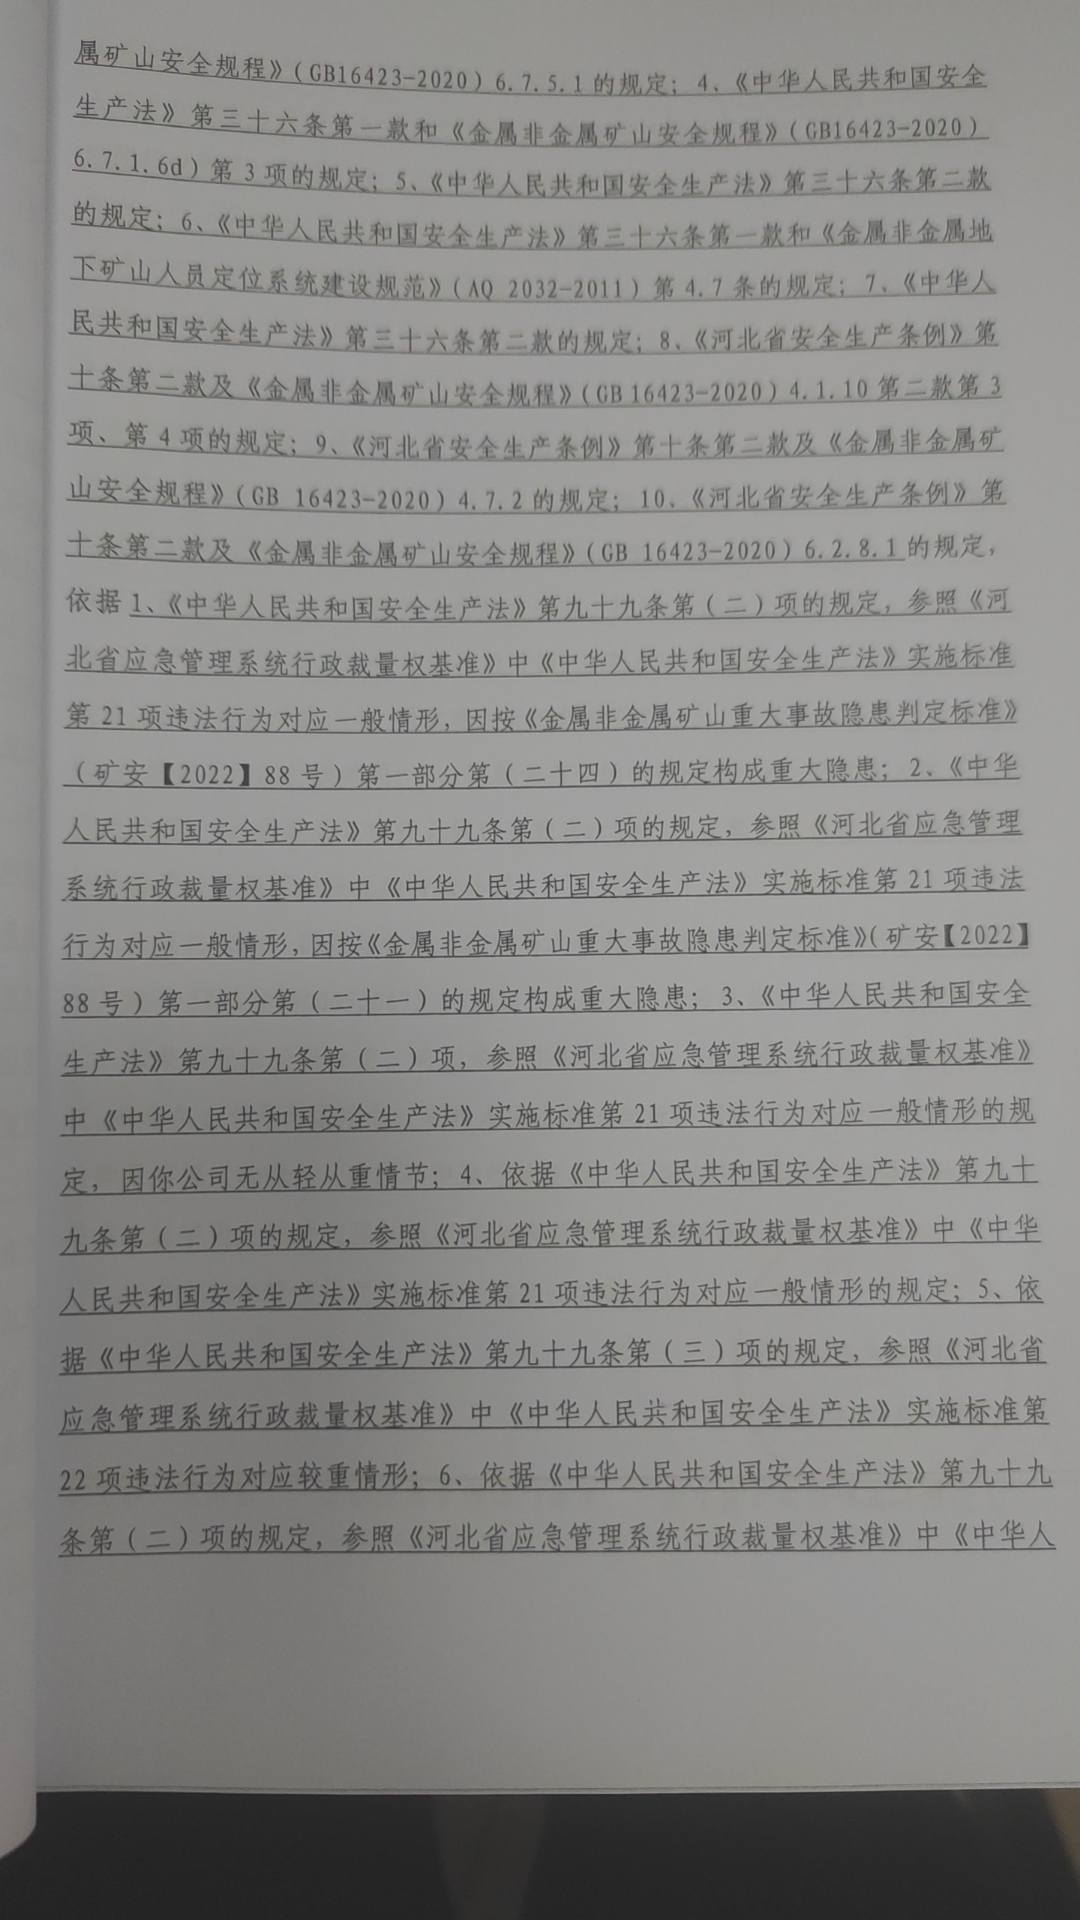 属矿山安全规程》(GB16423-2020) 6.7.5.1 的规定; 4、《中华人民共和国安全
生产法》第三十六条第一款和《金属非金属矿山安全规程》(GB16423-2020)
6.7.1.6d) 第 3 项的规定; 5、《中华人民共和国安全生产法》第三十六条第二款
的规定; 6、《中华人民共和国安全生产法》第三十六条第一款和《金属非金属地
下矿山人员定位系统建设规范》(AQ 2032-2011) 第 4.7 条的规定; 7、《中华人
民共和国安全生产法》第三十六条第二款的规定; 8、《河北省安全生产条例》第
十条第二款及《金属非金属矿山安全规程》(GB 16423-2020) 4.1.10 第二款第 3
项、第 4 项的规定; 9、《河北省安全生产条例》第十条第二款及《金属非金属矿
山安全规程》(GB 16423-2020) 4.7.2 的规定; 10、《河北省安全生产条例》第
十条第二款及《金属非金属矿山安全规程》(GB 16423-2020) 6.2.8.1 的规定,
依据 1、《中华人民共和国安全生产法》第九十九条第(二)项的规定, 参照《河
北省应急管理系统行政裁量权基准》中《中华人民共和国安全生产法》实施标准
第 21 项违法行为对应一般情形, 因按《金属非金属矿山重大事故隐患判定标准》
(矿安【2022】88 号) 第一部分第(二十四)的规定构成重大隐患; 2、《中华
人民共和国安全生产法》第九十九条第(二)项的规定, 参照《河北省应急管理
系统行政裁量权基准》中《中华人民共和国安全生产法》实施标准第 21 项违法
行为对应一般情形, 因按《金属非金属矿山重大事故隐患判定标准》(矿安【2022】
88 号) 第一部分第(二十一)的规定构成重大隐患; 3、《中华人民共和国安全
生产法》第九十九条第(二)项, 参照《河北省应急管理系统行政裁量权基准》
中《中华人民共和国安全生产法》实施标准第 21 项违法行为对应一般情形的规
定, 因你公司无从轻从重情节; 4、依据《中华人民共和国安全生产法》第九十
九条第(二)项的规定, 参照《河北省应急管理系统行政裁量权基准》中《中华
人民共和国安全生产法》实施标准第 21 项违法行为对应一般情形的规定; 5、依
据《中华人民共和国安全生产法》第九十九条第(三)项的规定, 参照《河北省
应急管理系统行政裁量权基准》中《中华人民共和国安全生产法》实施标准第
22 项违法行为对应较重情形; 6、依据《中华人民共和国安全生产法》第九十九
条第(二)项的规定, 参照《河北省应急管理系统行政裁量权基准》中《中华人